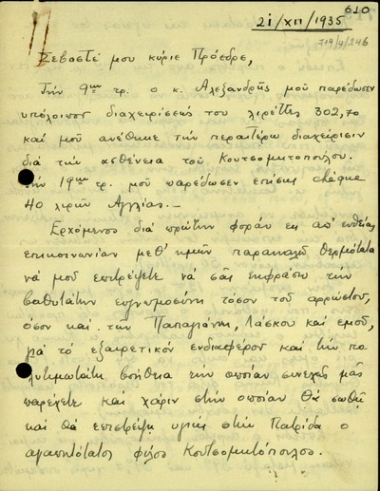 610
21/XII/1935
J19/4/246
Σεβαστέ μου κύριε Πρόεδρε,
Την 9ην τρ. ο κ. Αλεξανδρής μοῦ παρέδωσεν
υπόλοιπον διαχειρίσεώς του λιρέττες 302,70
καὶ μοῦ ανέθηκε τὴν περαιτέρω διαχείρισιν
διὰ τὴν ασθένεια τοῦ Κουτσομητοπούλου.
Την 19ην τρ. μοῦ παρέδωσεν επίσης chèque
40 λιρῶν Αγγλίας.—
Ερχόμενος διὰ πρώτην φορὰν εις απ' ευθείας
επικοινωνίαν μεθ' ημῶν παρακαλῶ θερμότατα
νὰ μοῦ επιτρέψετε νὰ σᾶς εκφράσω τὴν
βαθυτάτην ευγνωμοσύνη τόσον τοῦ αρρώστου,
όσον καὶ τῶν Παπαγιάννη, Λάσκου καὶ εμοῦ,
γιὰ τὸ εξαιρετικὸν ενδιαφέρον καὶ τὴν πο-
λυτιμωτάτη βοήθεια τὴν οποίαν συνεχῶς μᾶς
παρέχετε καὶ χάριν στὴν οποίαν θὰ σωθῆ
καὶ θὰ επιστρέψη υγιὴς στὴν Πατρίδα ο
αγαπητότατος φίλος Κουτσομητόπουλος.